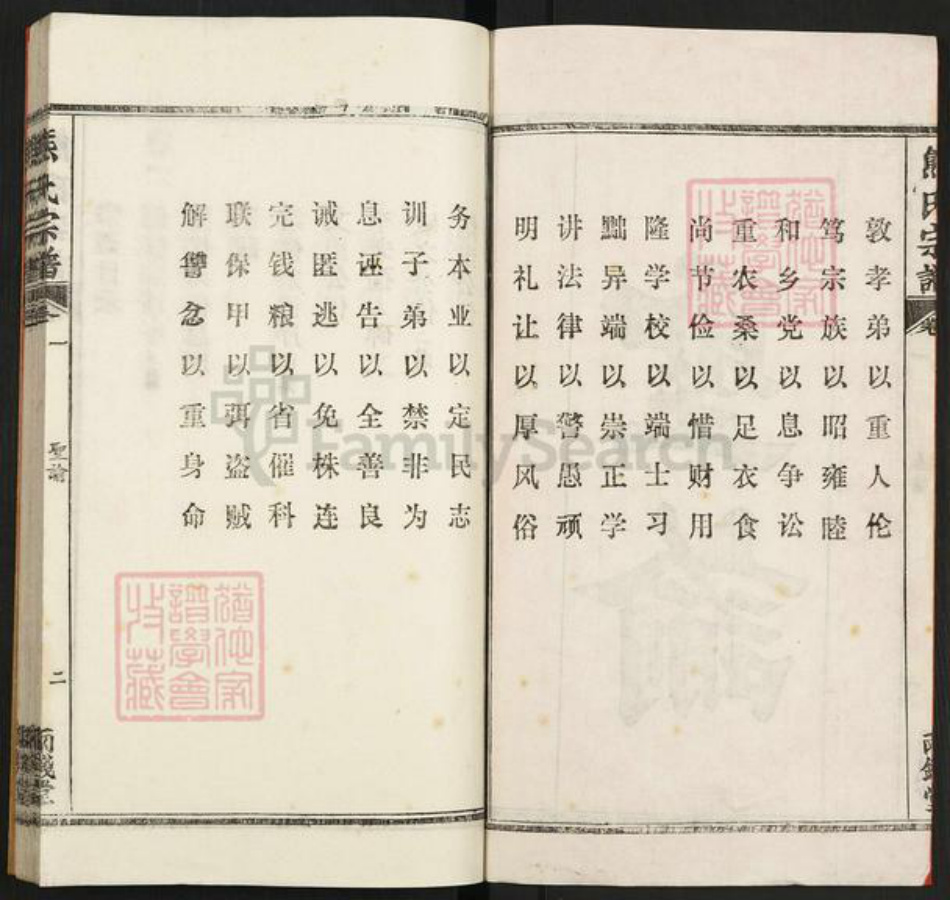 熊氏宗譜
敦孝弟以重人伦
笃宗族以昭雍睦
和乡党以息争讼
重农桑以足衣食
尚节俭以惜财用
隆学校以端士习
黜异端以崇正学
讲法律以警愚顽
明礼让以厚风俗
务本业以定民志
训子弟以禁非为
息诬告以全善良
诫匿逃以免株连
完钱粮以省催科
联保甲以弭盗贼
解讐忿以重身命
熊氏宗譜
聖諭
二
兩錢堂
FamilySearch